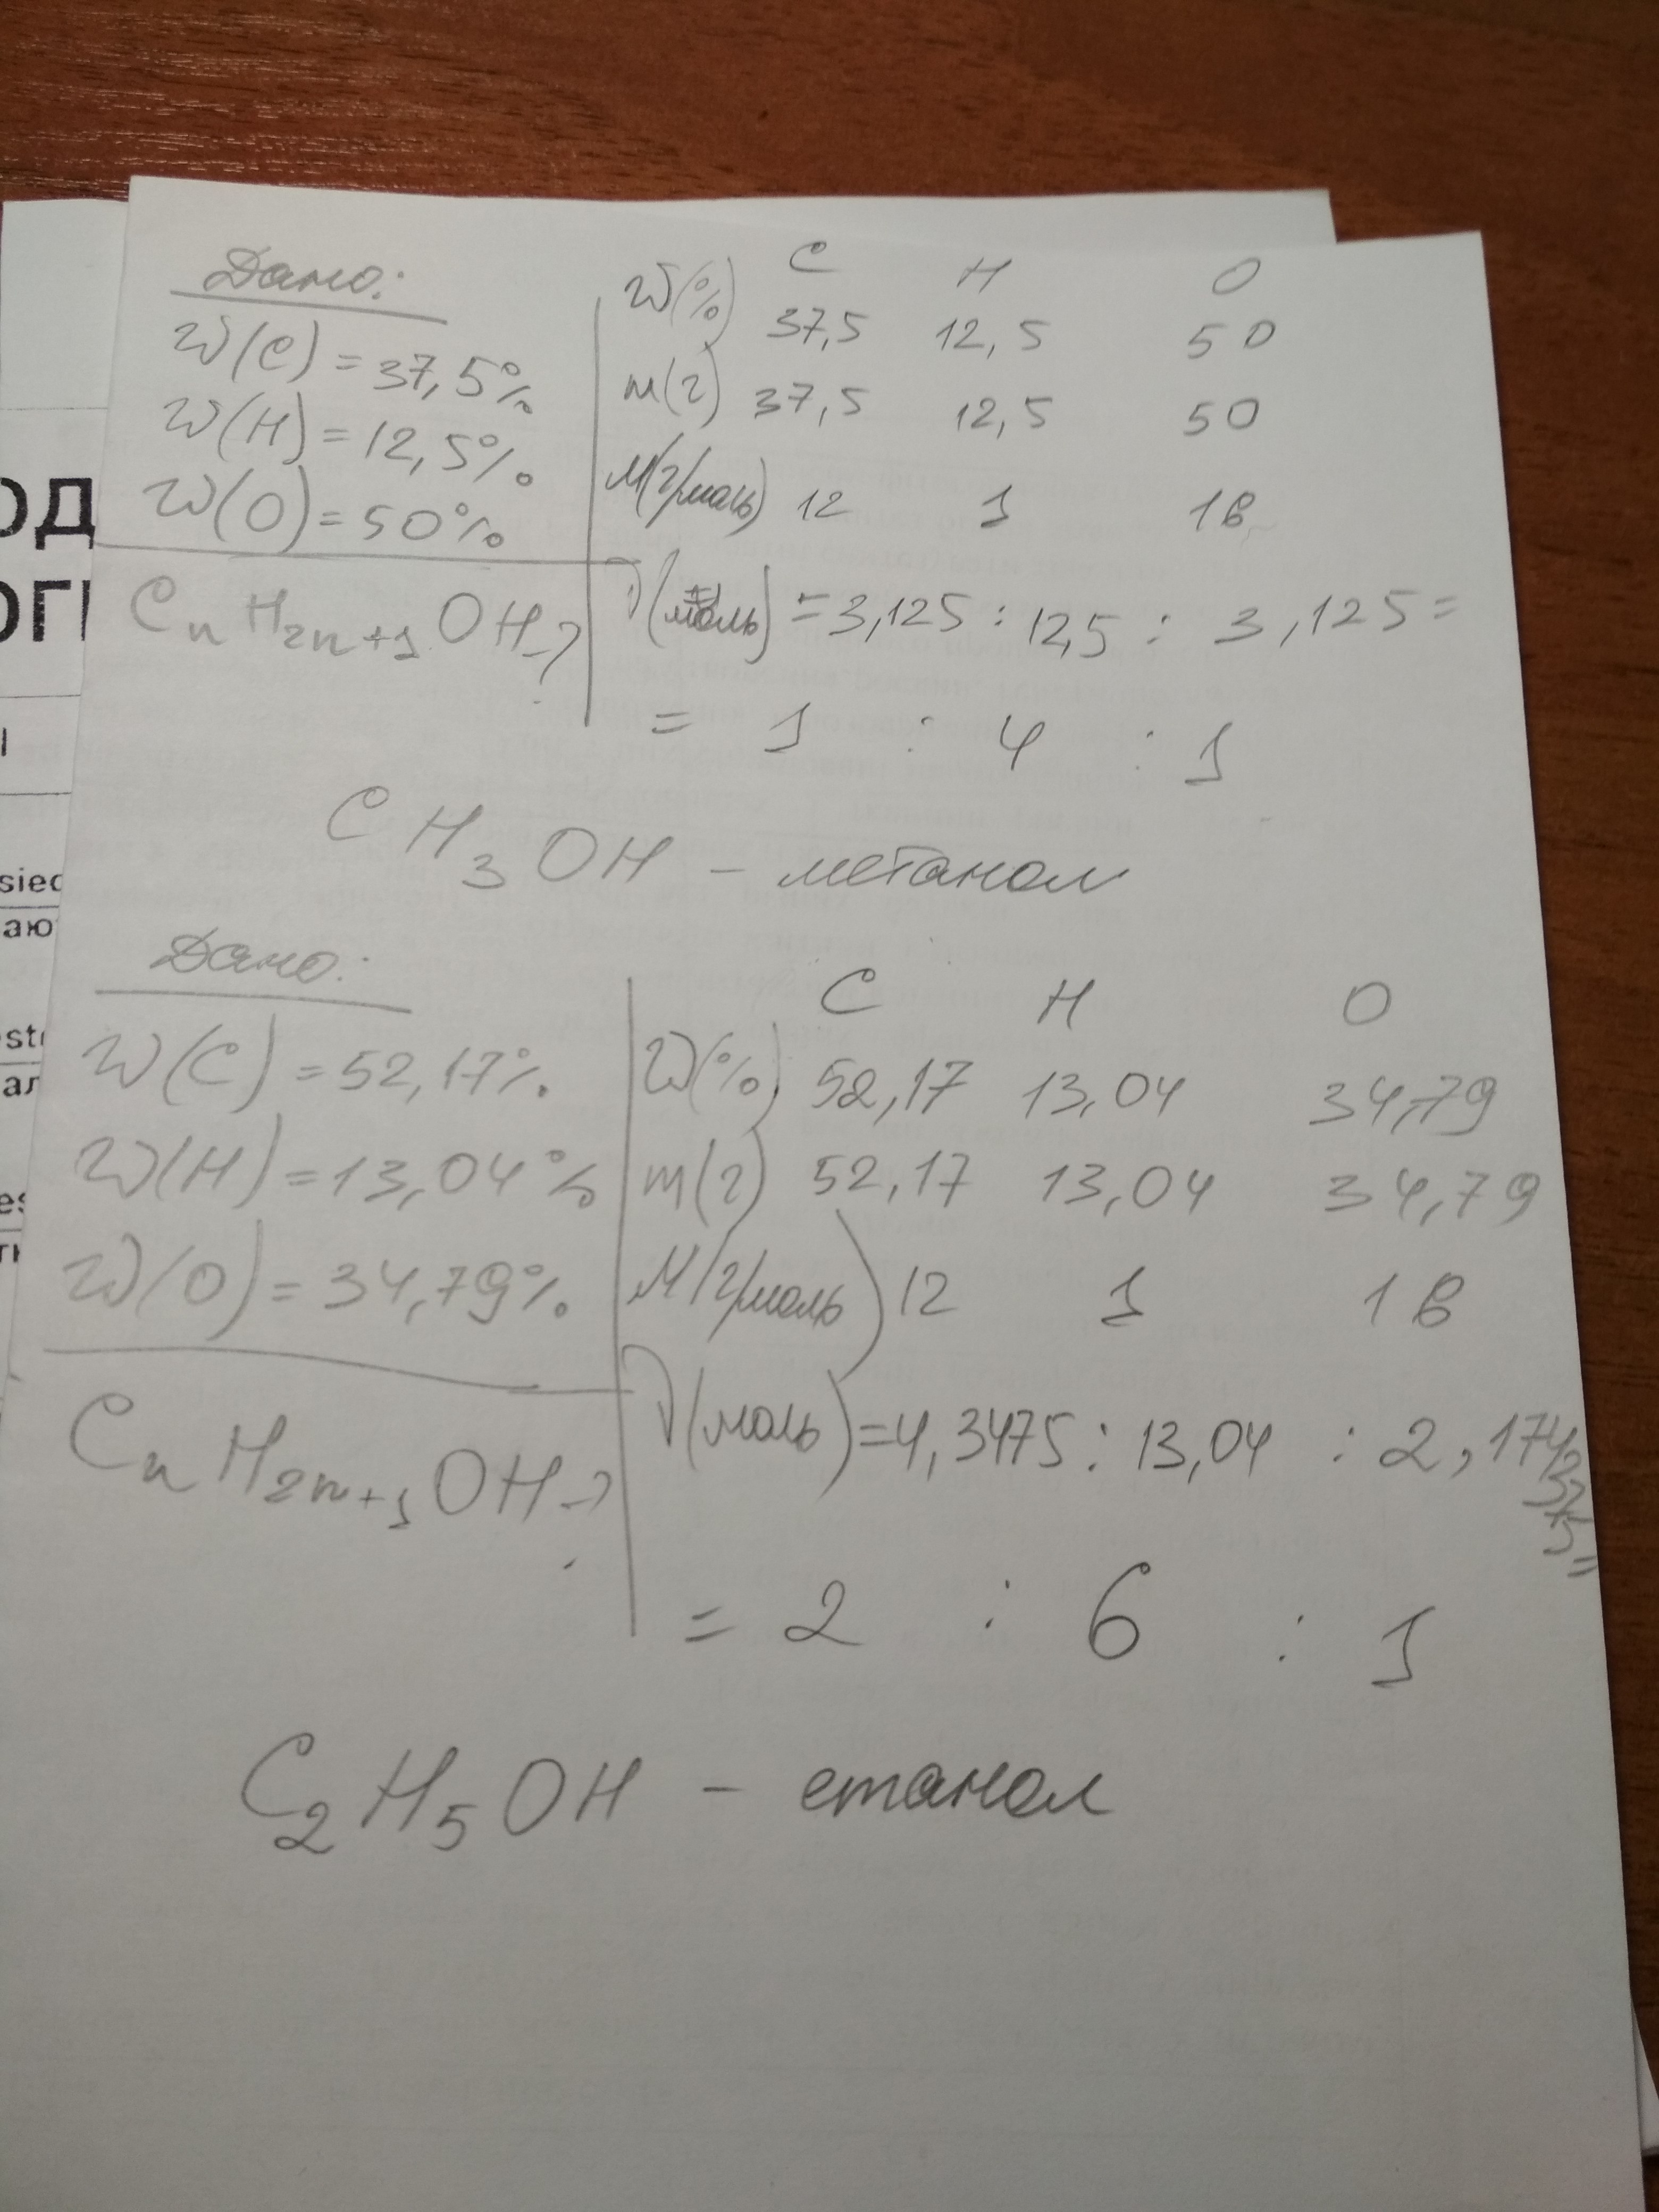 Дано:
W(C) = 37,5%
W(H) = 12,5%
W(O) = 50%
CnH2n+1OH - ?
C H O
W(%) 37,5 12,5 50
m(г) 37,5 12,5 50
M(г/моль) 12 1 16
ν(моль) = 3,125 : 12,5 : 3,125 =
= 1 : 4 : 1
CH3OH - метанол
Дано:
W(C) = 52,17%
W(H) = 13,04%
W(O) = 34,79%
CnH2n+1OH - ?
C H O
W(%) 52,17 13,04 34,79
m(г) 52,17 13,04 34,79
M(г/моль) 12 1 16
ν(моль) = 4,3475 : 13,04 : 2,174375 =
= 2 : 6 : 1
C2H5OH - етанол